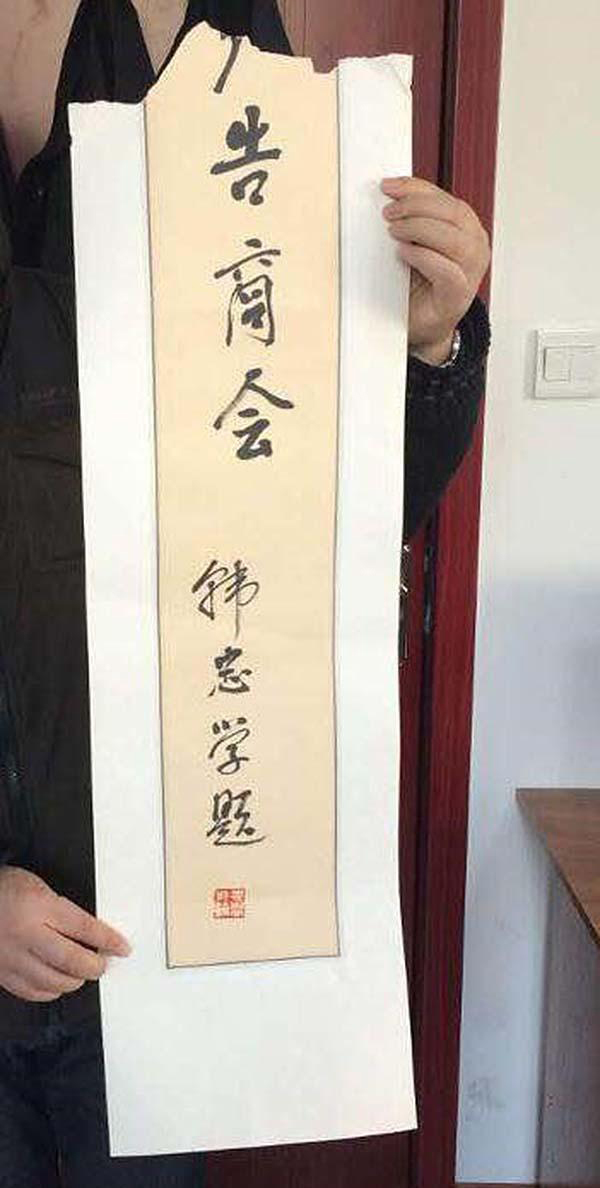 告商会
韩志学题